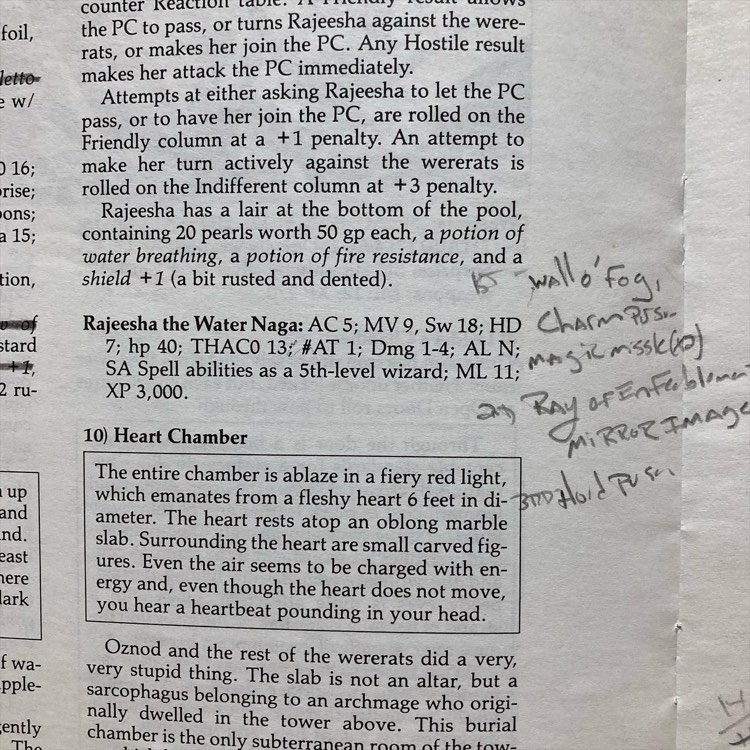 foil,
letto-
w/
16;
rise;
ons;
a 15;
tion,
of
stard
+1,
2 ru-
up
and
nd.
east
here
lark
f wa-
pple-
ently
The
counter Reaction table. A Friendly result allows
the PC to pass, or turns Rajeesha against the were-
rats, or makes her join the PC. Any Hostile result
makes her attack the PC immediately.
Attempts at either asking Rajeesha to let the PC
pass, or to have her join the PC, are rolled on the
Friendly column at a +1 penalty. An attempt to
make her turn actively against the wererats is
rolled on the Indifferent column at +3 penalty.
Rajeesha has a lair at the bottom of the pool,
containing 20 pearls worth 50 gp each, a potion of
water breathing, a potion of fire resistance, and a
shield +1 (a bit rusted and dented).
Rajeesha the Water Naga: AC 5; MV 9, Sw 18; HD
7; hp 40; THAC0 13; #AT 1; Dmg 1-4; AL N;
SA Spell abilities as a 5th-level wizard; ML 11;
XP 3,000.
10) Heart Chamber
The entire chamber is ablaze in a fiery red light,
which emanates from a fleshy heart 6 feet in di-
ameter. The heart rests atop an oblong marble
slab. Surrounding the heart are small carved fig-
ures. Even the air seems to be charged with en-
ergy and, even though the heart does not move,
you hear a heartbeat pounding in your head.
Oznod and the rest of the wererats did a very,
very stupid thing. The slab is not an altar, but a
sarcophagus belonging to an archmage who origi-
nally dwelled in the tower above. This burial
chamber is the only subterranean room of the tow-
wall o' Fog,
Charm
magic missle
2nd Ray of Enfeeblement
Mirror Image
3RD Hold